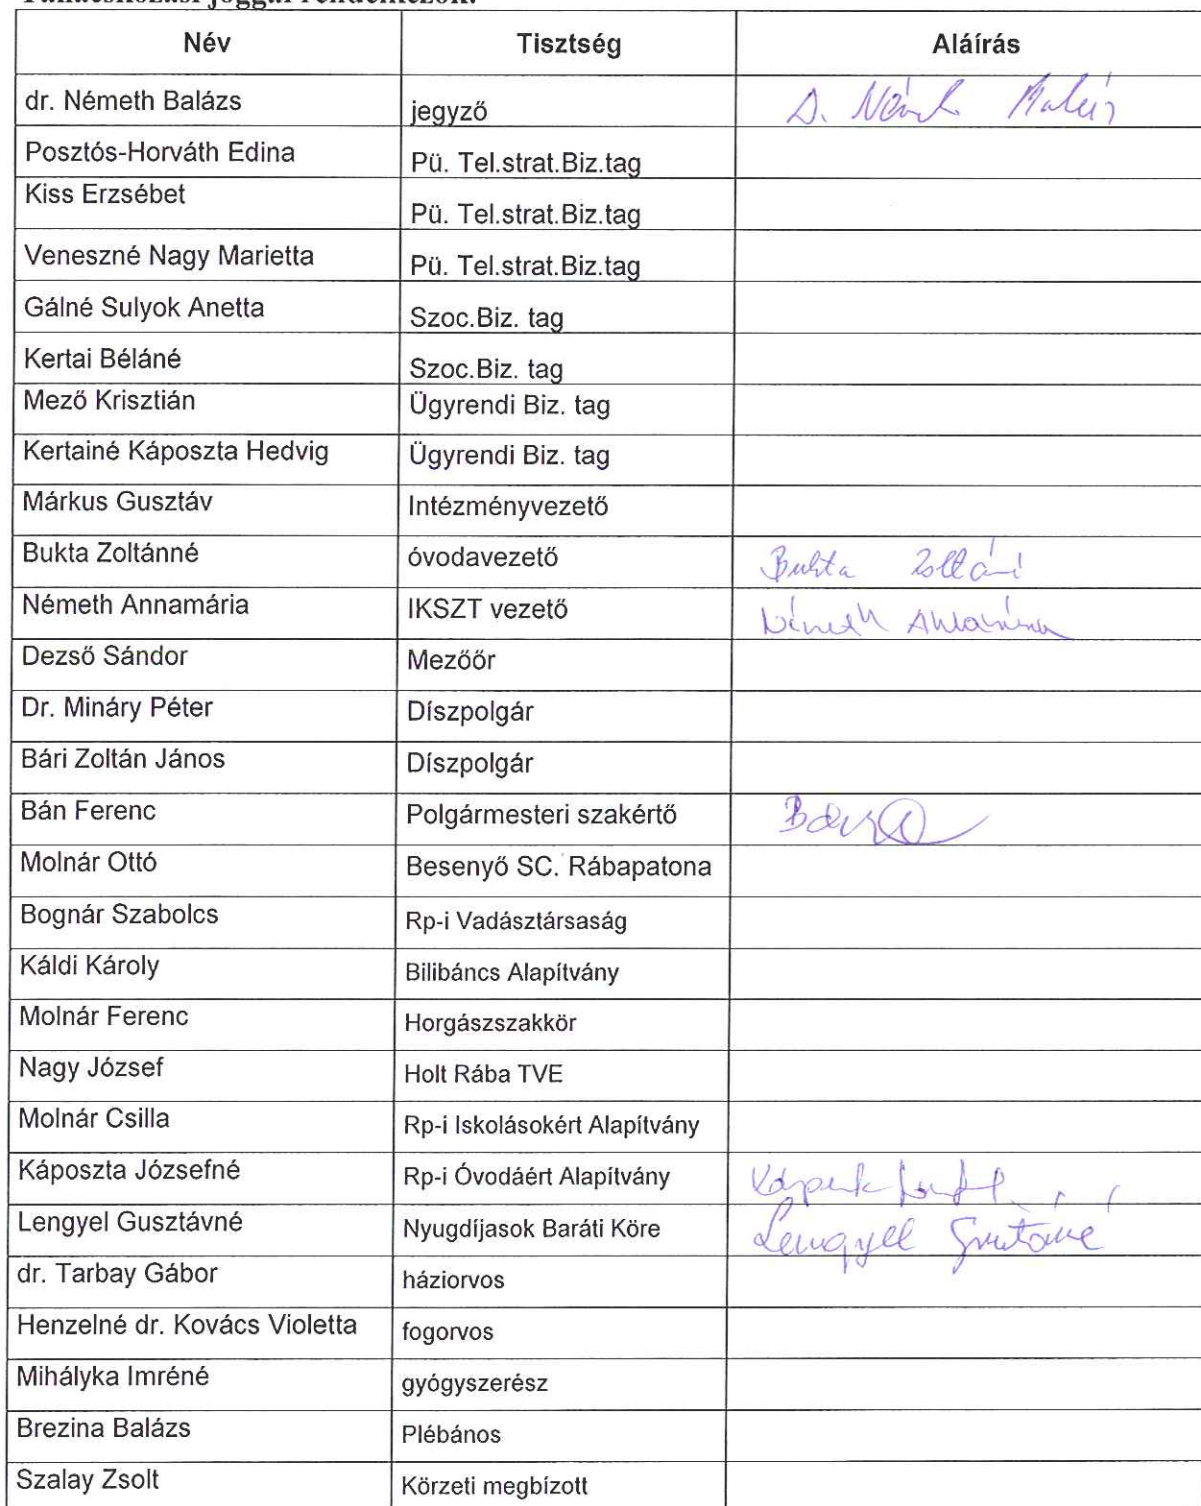 Tanácskozási joggal rendelkezők:
Név Tisztség Aláírás
dr. Németh Balázs jegyző
Posztós-Horváth Edina Pü. Tel.strat.Biz.tag
Kiss Erzsébet Pü. Tel.strat.Biz.tag
Veneszné Nagy Marietta Pü. Tel.strat.Biz.tag
Gálné Sulyok Anetta Szoc.Biz. tag
Kertai Béláné Szoc.Biz. tag
Mező Krisztián Ügyrendi Biz. tag
Kertainé Káposzta Hedvig Ügyrendi Biz. tag
Márkus Gusztáv Intézményvezető
Bukta Zoltánné óvodavezető Bukta
Németh Annamária IKSZT vezető Németh
Dezső Sándor Mezőőr
Dr. Mináry Péter Díszpolgár
Bári Zoltán János Díszpolgár
Bán Ferenc Polgármesteri szakértő
Molnár Ottó Besenyő SC. Rábapatona
Bognár Szabolcs Rp-i Vadásztársaság
Káldi Károly Bilibáncs Alapítvány
Molnár Ferenc Horgászszakkör
Nagy József Holt Rába TVE
Molnár Csilla Rp-i Iskolásokért Alapítvány
Káposzta Józsefné Rp-i Óvodáért Alapítvány
Lengyel Gusztávné Nyugdíjasok Baráti Köre Lengyel
dr. Tarbay Gábor háziorvos
Henzelné dr. Kovács Violetta fogorvos
Mihályka Imréné gyógyszerész
Brezina Balázs Plébános
Szalay Zsolt Körzeti megbízott